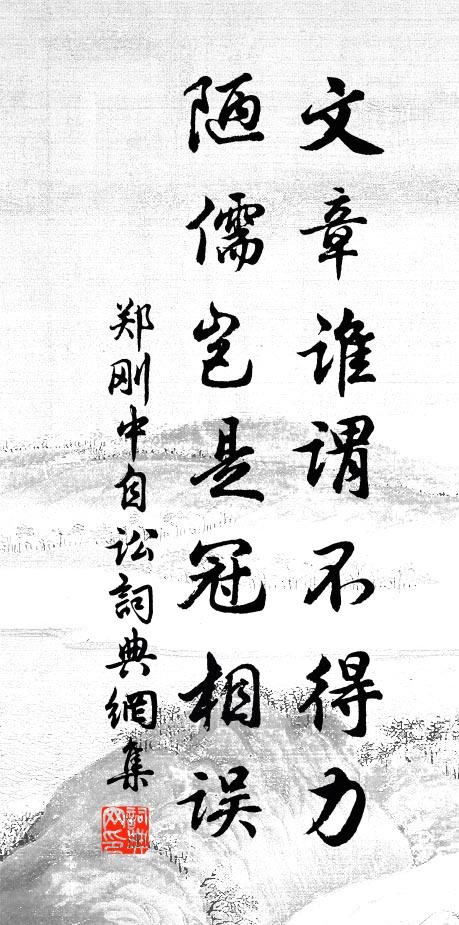 文章谁谓不得力
陋儒岂是冠相误
郑刚中自讼詞典網集